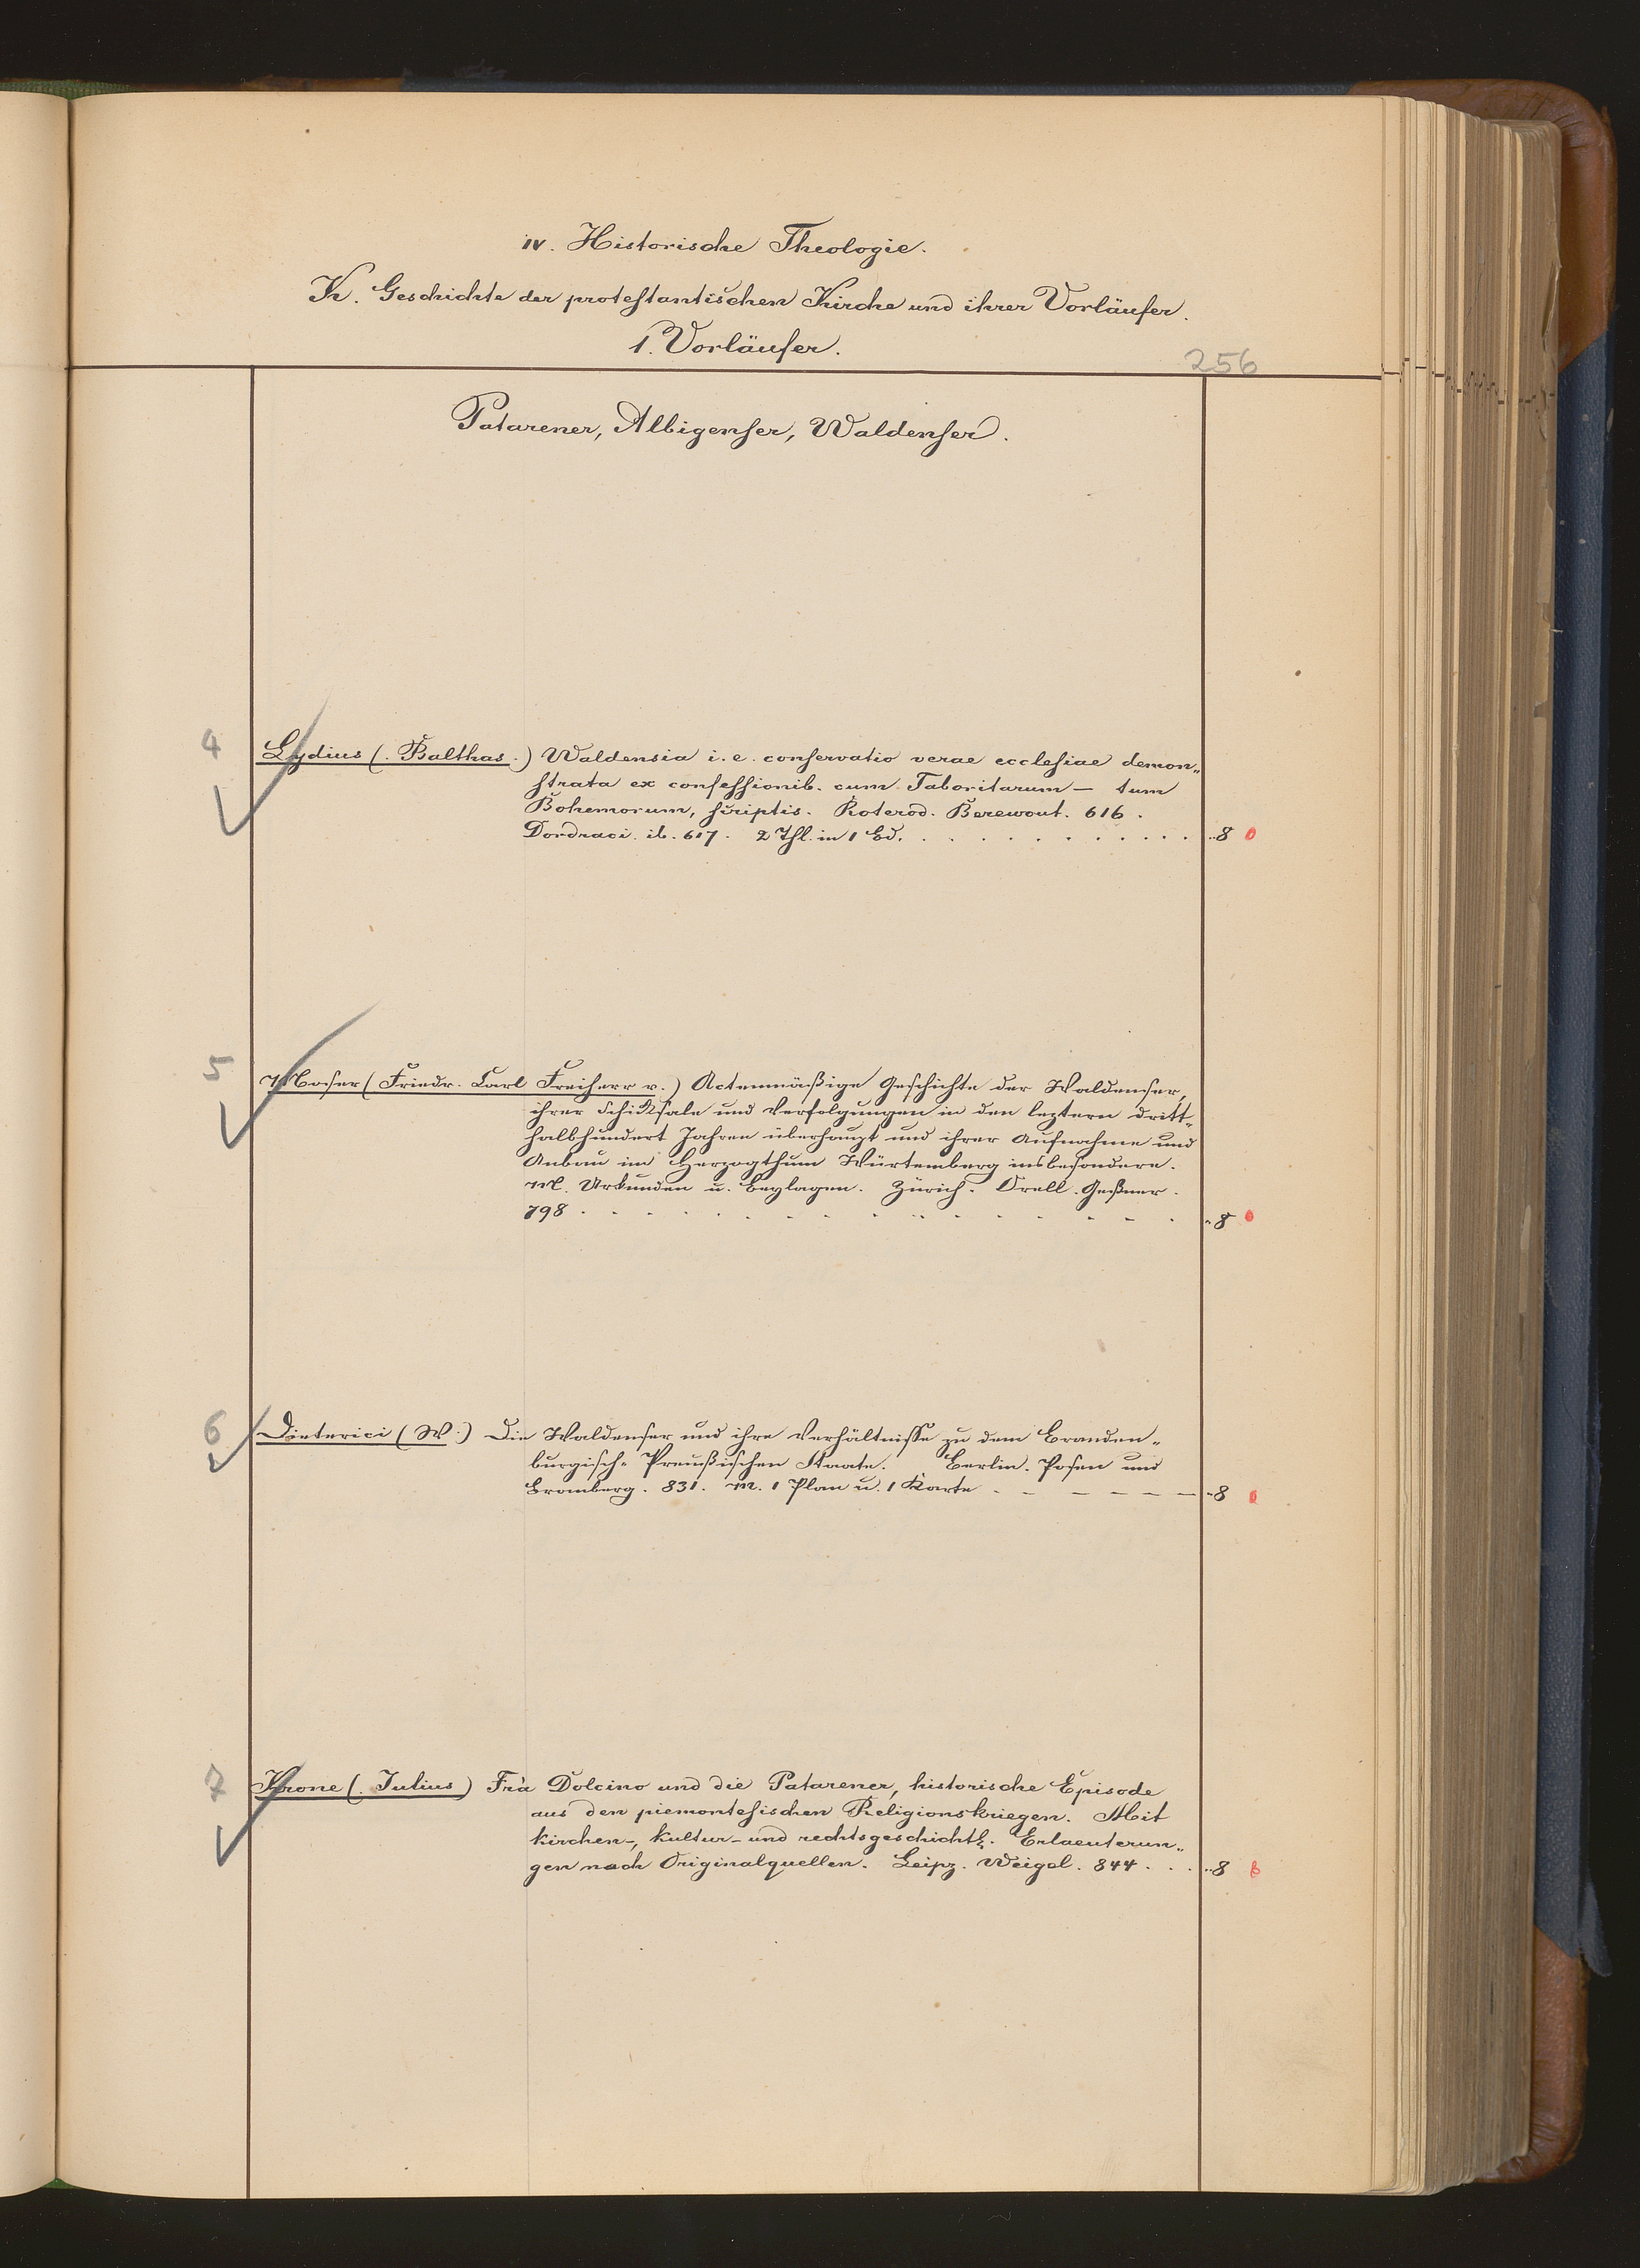 IV. Historische Theologie.
K. Geschichte der protestantischen Kirche und ihrer Vorläufer.
1. Vorläufer.
256
Patarener, Albigenser, Waldenser.
4
Lydius (. Balthas.) Waldensia i. e. conservatio verae ecclesiae demon„
strata ex confessionib. cum Taboritarum — tum
Bohemorum, scriptis. Roterod. Berewout. 616.
Dordraci. ib. 617. 2 Thl. in 1 Bd. . . . . . . . . . . . „8 0
5
Moser (Friedr. Carl Freiherr v.) Actenmäßige Geschichte der Waldenser,
ihrer Schiksale und Verfolgungen in den leztern dritt„
halbhundert Jahren überhaupt und ihrer Aufnahme und
Anbau im Herzogthum Würtemberg insbesondere.
M. Urkunden u. Beylagen. Zürich. Orell. Geßner.
798 . . . . . . . . . . . . . . . „8 0
6
Dieterici (W.) Die Waldenser und ihre Verhältnisse zu dem Branden„
burgisch-Preußischen Staate. Berlin. Posen und
Bromberg. 831. M. 1 Plan u. 1 Karte . - - - - - - „8
7
Krone (. Julius) Frà Dolcino und die Patarener, historische Episode
aus den piemontesischen Religionskriegen. Mit
kirchen-, kultur- und rechtsgeschichtl. Erlaeuterun„
gen nach Originalquellen. Leipz. Weigel. 844 . . . „8